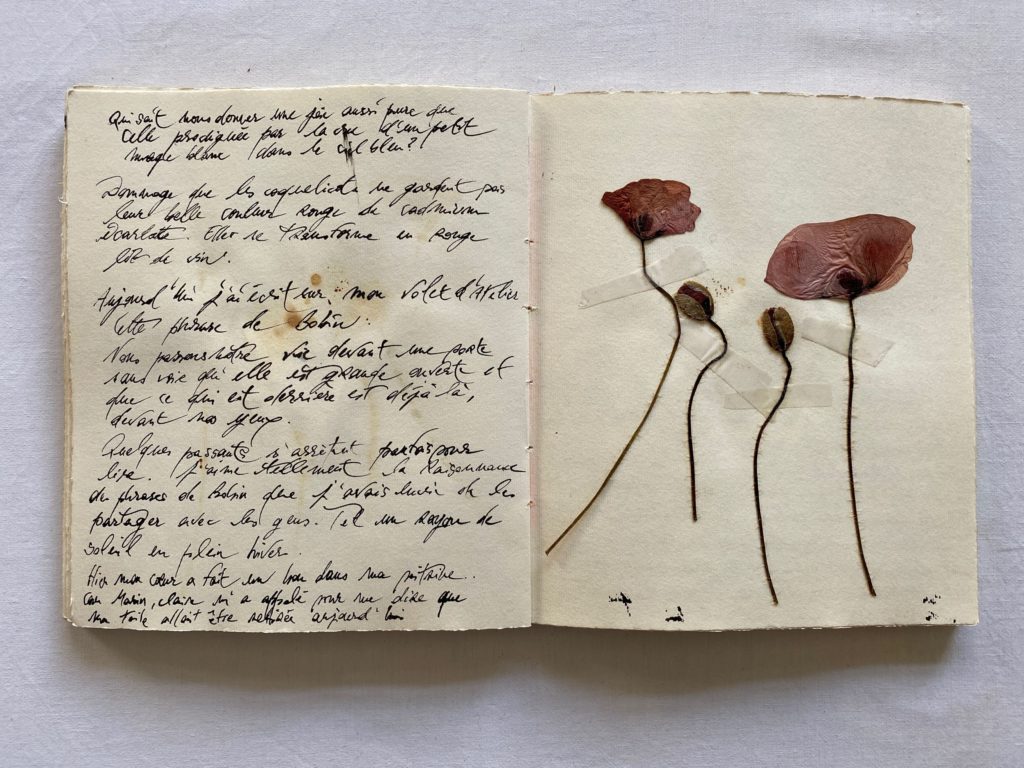 Qui sait nous donner une joie aussi pure que
celle prodiguée par la vue d'un petit
nuage blanc dans le ciel bleu?
Dommage que les coquelicots ne gardent pas
leur belle couleur rouge de cadmium
écarlate. Elle se transforme en rouge
lit de vin.
Aujourd'hui j'ai écrit sur mon volet d'atelier
cette phrase de Bobin:
Nous passons notre vie devant une porte
sans voir qu'elle est grande ouverte et
que ce qui est derrière est déjà là,
devant nos yeux.
Quelques passants s'arrêtent parfois pour
lire. J'aime tellement la raisonnance
des phrases de Bobin que j'avais envie de les
partager avec les gens. Tel un rayon de
soleil en plein hiver.
Hier mon cœur a fait un bon dans ma poitrine..
Car Marin, claire m'a appelé pour me dire que
ma toile allait être aujourd'hui